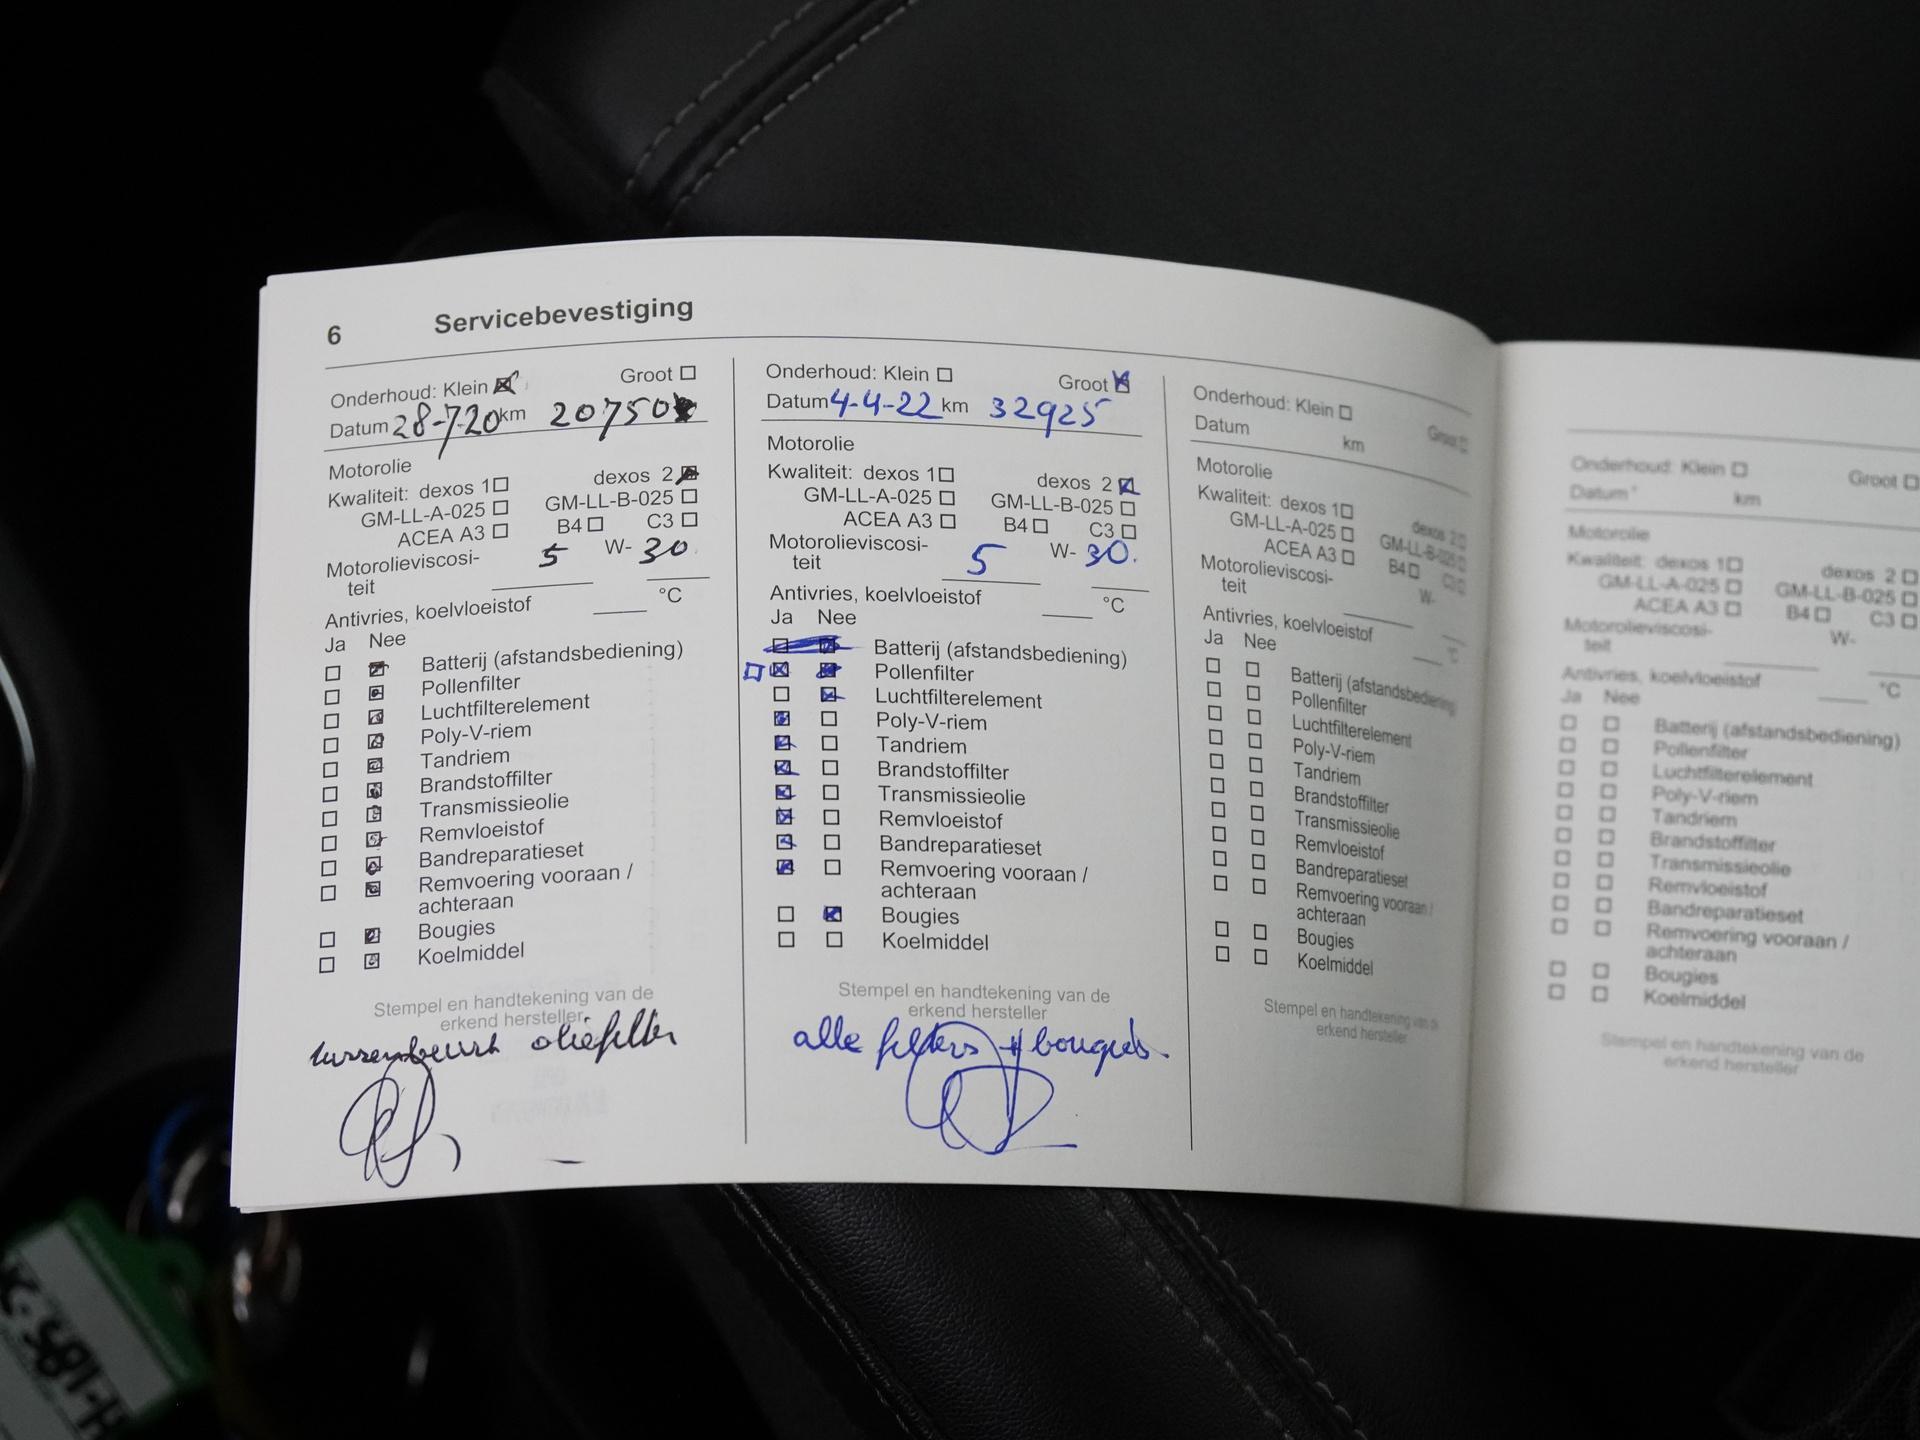 6 Servicebevestiging
Onderhoud: Klein Groot
Datum 28-7-20 km 20750
Motorolie
Kwaliteit: dexos 1 dexos 2
GM-LL-A-025 GM-LL-B-025
ACEA A3 B4 C3
Motorolieviscosi-
teit 5 W- 30.
Antivries, koelvloeistof °C
Ja Nee
Batterij (afstandsbediening)
Pollenfilter
Luchtfilterelement
Poly-V-riem
Tandriem
Brandstoffilter
Transmissieolie
Remvloeistof
Bandreparatieset
Remvoering vooraan /
achteraan
Bougies
Koelmiddel
Stempel en handtekening van de
erkend hersteller
tussenbeurt oliefilter
Onderhoud: Klein Groot
Datum 4-4-22 km 32925
Motorolie
Kwaliteit: dexos 1 dexos 2
GM-LL-A-025 GM-LL-B-025
ACEA A3 B4 C3
Motorolieviscosi-
teit 5 W- 30.
Antivries, koelvloeistof °C
Ja Nee
Batterij (afstandsbediening)
Pollenfilter
Luchtfilterelement
Poly-V-riem
Tandriem
Brandstoffilter
Transmissieolie
Remvloeistof
Bandreparatieset
Remvoering vooraan /
achteraan
Bougies
Koelmiddel
Stempel en handtekening van de
erkend hersteller
alle filters + bougies
Onderhoud: Klein Groot
Datum km
Motorolie
Kwaliteit: dexos 1 dexos 2
GM-LL-A-025 GM-LL-B-025
ACEA A3 B4 C3
Motorolieviscosi-
teit W-
Antivries, koelvloeistof °C
Ja Nee
Batterij (afstandsbediening
Pollenfilter
Luchtfilterelement
Poly-V-riem
Tandriem
Brandstoffilter
Transmissieolie
Remvloeistof
Bandreparatieset
Remvoering vooraan /
achteraan
Bougies
Koelmiddel
Stempel en handtekening van de
erkend hersteller
Onderhoud: Klein Groot
Datum km
Motorolie
Kwaliteit: dexos 1 dexos 2
GM-LL-A-025 GM-LL-B-025
ACEA A3 B4 C3
Motorolieviscosi-
teit W-
Antivries, koelvloeistof °C
Ja Nee
Batterij (afstandsbediening)
Pollenfilter
Luchtfilterelement
Poly-V-riem
Tandriem
Brandstoffilter
Transmissieolie
Remvloeistof
Bandreparatieset
Remvoering vooraan /
achteraan
Bougies
Koelmiddel
Stempel en handtekening van de
erkend hersteller